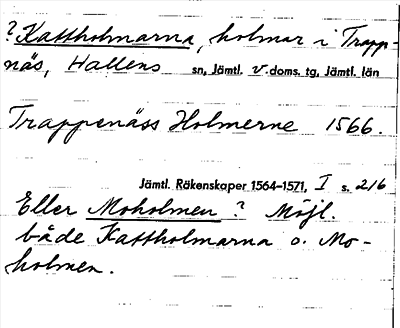 ? Kattholmarna, holmar i Trapp-
näs, Hallens sn, Jämtl. v. doms. tg, Jämtl. län
Trappenäss Holmerne 1566.
Jämtl. Räkenskaper 1564–1571, I s. 216
Eller Moholmen? Möjl.
både Kattholmarna o. Mo-
holmen.